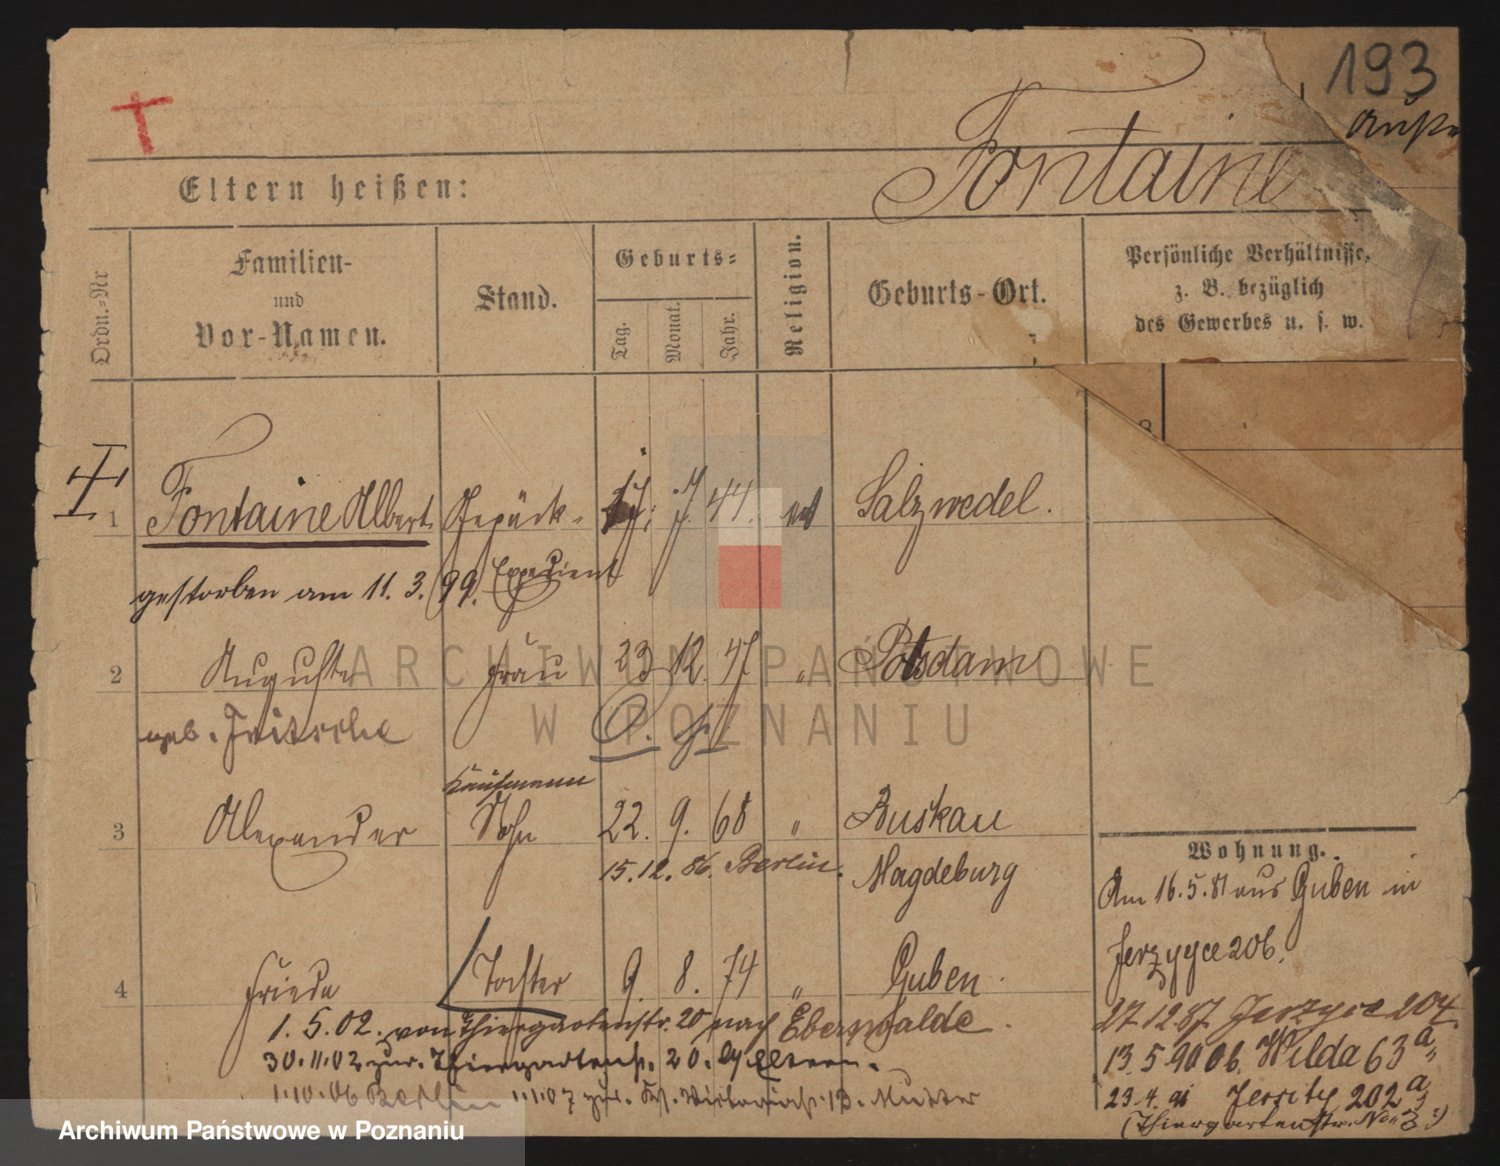 193
Fontaine
Eltern heißen:
Ordn.-Nr
Familien-
und
Vor-Namen.
Stand.
Geburts-
Tag.
Monat.
Jahr.
Religion.
Geburts-Ort.
Persönliche Verhältnisse,
z. B. bezüglich
des Gewerbes u. s. w.
1 Fontaine Albert Gepäck- 17. 7. 44. Salzwedel.
gestorben am 11. 3. 99. Expedient
2 Auguste Frau 23 12. 47 " Potsdam
geb. Fritsche
Kaufmann
3 Alexander Sohn 22. 9. 68 " Buckau
15. 12. 86. Berlin. Magdeburg
Wohnung.
Am 16. 5. 81 aus Guben in
Jerzyce 206.
4 Frieda Tochter 9. 8. 74 " Guben.
1. 5. 02. von Thiergartenstr. 20 nach Eberswalde.
30. 11. 02 zur. Thiergartenstr. 20. Eltern.
1. 10. 06 Berlin 1. 1. 07 zur. Mutter
27. 12. 87. Jerzyce 204.
13. 5. 90 Wilda 63a
23. 4. 91 202a
(Thiergartenstr. No. 3.)
ARCHIWUM PAŃSTWOWE
W POZNANIU
Archiwum Państwowe w Poznaniu